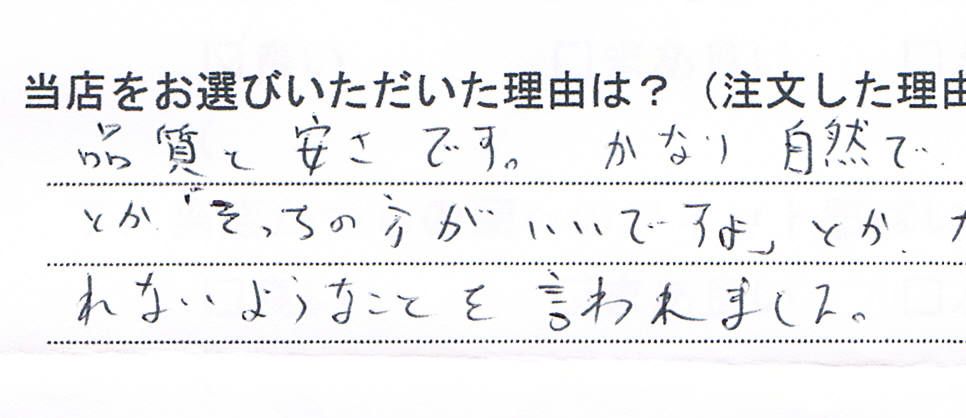 当店をお選びいただいた理由は？（注文した理由
品質と安さです。かなり自然で
とか「そっちの方がいいですよ」とか
れないようなことを言われました。